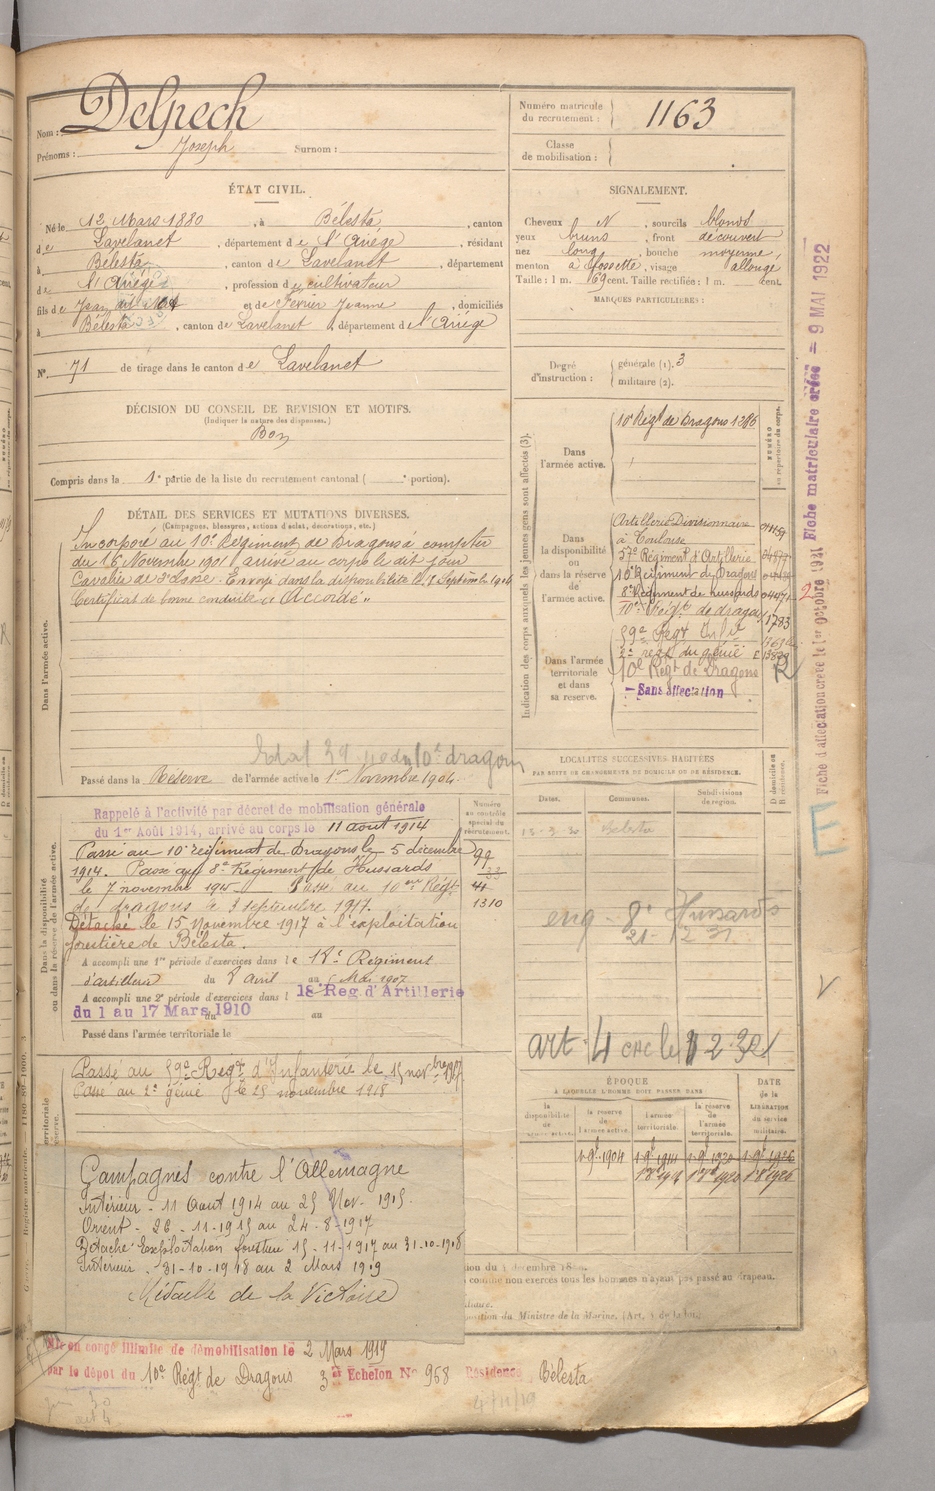 Nom : Delpech
Prénoms : Joseph Surnom :
Numéro matricule du recrutement : 1163
Classe de mobilisation :
ÉTAT CIVIL.
Né le 12 Mars 1880, à Bélesta, canton
de Lavelanet, département de l'Ariége, résidant
à Bélesta, canton de Lavelanet, département
de l'Ariége, profession de cultivateur
fils de Jean et de Février Jeanne, domiciliés
à Bélesta, canton de Lavelanet, département de l'Ariége
N° 71 de tirage dans le canton de Lavelanet
SIGNALEMENT.
Cheveux N, sourcils blonds
yeux bruns, front découvert
nez long, bouche moyenne,
menton à fossette, visage allongé
Taille : 1 m. 69 cent. Taille rectifiée : 1 m. cent.
MARQUES PARTICULIÈRES :
Degré d'instruction : générale (1). 3
militaire (2).
DÉCISION DU CONSEIL DE REVISION ET MOTIFS.
(Indiquer la nature des dispenses.)
Bon
Compris dans la 1e partie de la liste du recrutement cantonal ( e portion).
DÉTAIL DES SERVICES ET MUTATIONS DIVERSES.
(Campagnes, blessures, actions d'éclat, décorations, etc.)
Dans l'armée active.
Incorporé au 10e Régiment de Dragons à compter
du 16 Novembre 1901 arrivé au corps le dit jour
Cavalier de 2e classe. Envoyé dans la disponibilité le Septembre 1904
Certificat de bonne conduite "Accordé"
Passé dans la Réserve de l'armée active le 1er Novembre 1904.
Indication des corps auxquels les jeunes gens sont affectés (3).
NUMÉRO au répertoire du corps.
Dans l'armée active.
10e Régt de Dragons 1286
Dans la disponibilité ou dans la réserve de l'armée active.
Artillerie Divisionnaire
à Toulouse
57e Régiment d'Artillerie
10e Régiment de Dragons
8e Régiment de hussards
10e Régt de dragons 1783
Dans l'armée territoriale et dans sa réserve.
59e Régt Infie
2e régt du génie
10e Régt de Dragons
Sans affectation
LOCALITÉS SUCCESSIVES HABITÉES
PAR SUITE DE CHANGEMENTS DE DOMICILE OU DE RÉSIDENCE.
D domicile ou R résidence.
Dates. Communes. Subdivisions de région.
Bélesta
8e Hussards
art 4
Dans la disponibilité ou dans la réserve de l'armée active.
Numéro au contrôle spécial du recrutement.
Rappelé à l'activité par décret de mobilisation générale
du 1er Août 1914, arrivé au corps le 11 août 1914
Passé au 10e régiment de Dragons le 5 décembre
1914. Passé au 8e Régiment de Hussards
le 7 novembre 1915 Passé au 10e Régt
de dragons le 3 septembre 1917.
Détaché le 15 Novembre 1917 à l'exploitation
forestière de Bélesta.
1310
A accompli une 1re période d'exercices dans le 18e Régiment
d'artillerie du 8 avril au 5 Mai 1907
A accompli une 2e période d'exercices dans l 18e Reg. d'Artillerie
du 1 au 17 Mars 1910 au
Passé dans l'armée territoriale le
Passé au 59e Régt d'Infanterie le 15 novbre 1917
Passé au 2e Génie le 25 novembre 1918
ÉPOQUE
À LAQUELLE L'HOMME DOIT PASSER DANS
DATE de la LIBÉRATION du service militaire.
la disponibilité de l'armée active. la réserve de l'armée active. l'armée territoriale. la réserve de l'armée territoriale.
Campagnes contre l'Allemagne
Intérieur - 11 Aout 1914 au 25 Nov. 1915.
Orient - 26 - 11 - 1915 au 24 - 8 - 1917
Détaché Exploitation forestière 15 - 11 - 1917 au 31-10-1918
Intérieur - 31-10-1918 au 2 Mars 1919
Médaille de la Victoire
Mis en congé illimité de démobilisation le 2 Mars 1919
par le dépot du 10e Régt de Dragons 3e Echelon N° 968 Résidence Bélesta
Fiche d'affectation créée le 1er octobre 1921 Fiche matriculaire créée = 9 MAI 1922